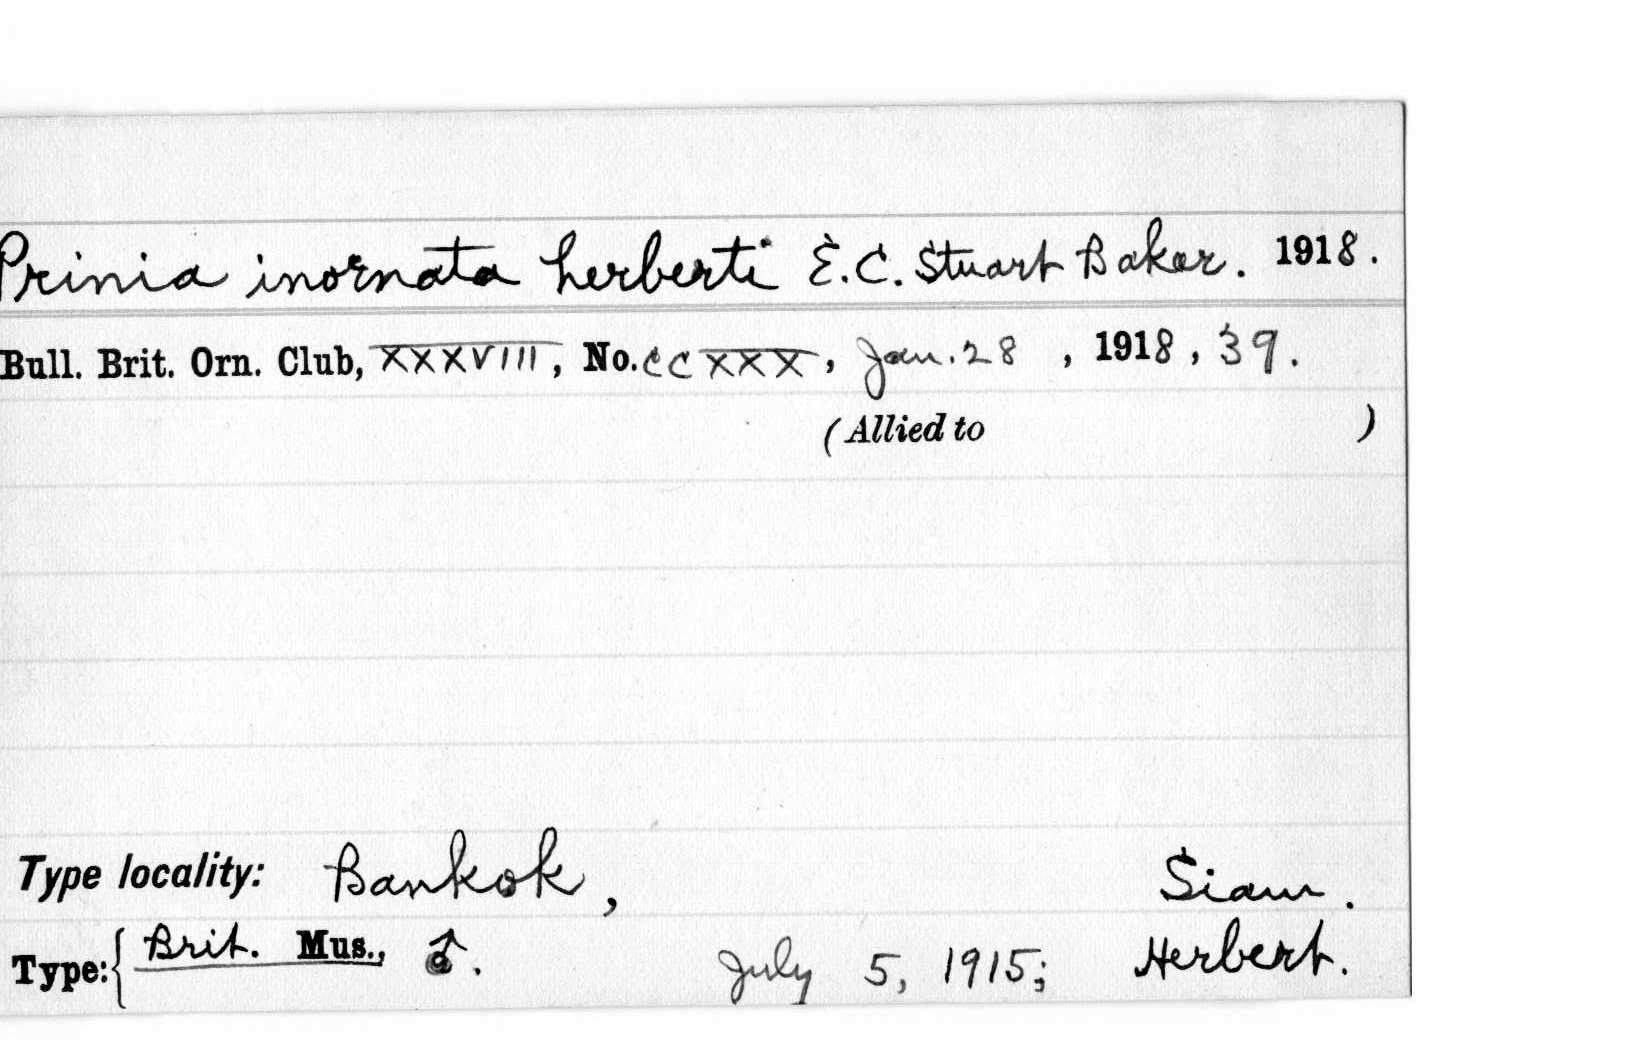 Prinia inornata herberti E.C. Stuart Baker. 1918.
Bull. Brit. Orn. Club, XXXVIII, No. CCXXX, Jan. 28, 1918, 39.
(Allied to )
Type locality: Bankok, Siam.
Type: { Brit. Mus., ♂. July 5, 1915; Herbert.